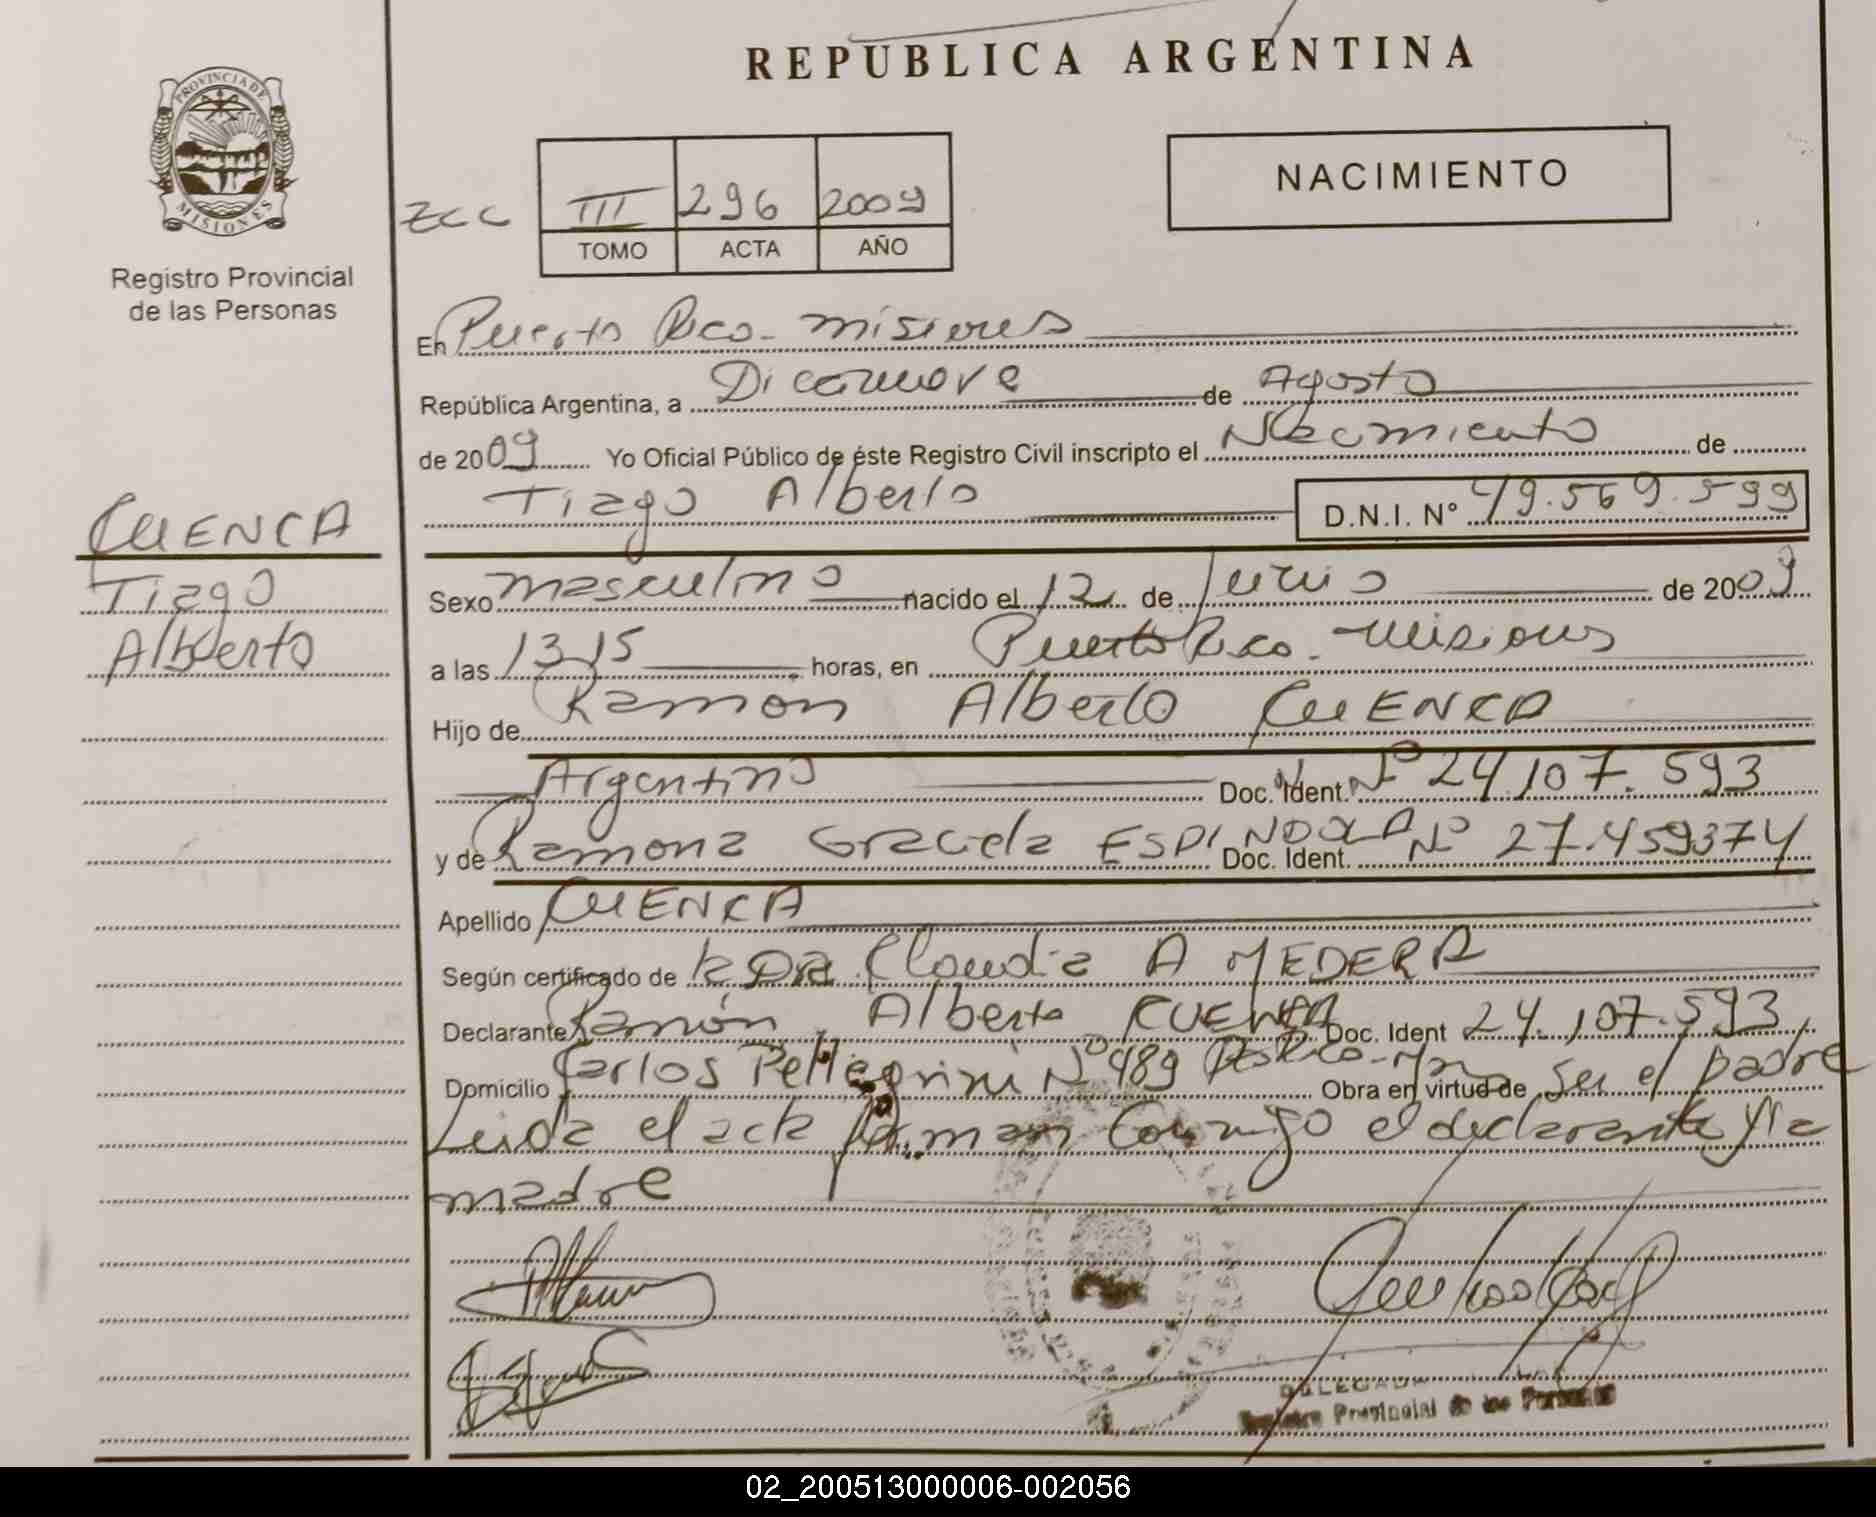 REPUBLICA ARGENTINA
PROVINCIA DE MISIONES
Registro Provincial
de las Personas
NACIMIENTO
ZCC III 296 2009
TOMO ACTA AÑO
En Puerto Rico - misiones
República Argentina, a Diecinueve de Agosto
de 2009 Yo Oficial Público de éste Registro Civil inscripto el Nacimiento de
Tiago Alberto D.N.I. N° 49.569.599
CUENCA
Tiago
Alberto
Sexo masculino nacido el 12 de Junio de 2009
a las 13 15 horas, en Puerto Rico - misiones
Hijo de Ramón Alberto CUENCA
Argentino Doc. Ident. N° 24.107.593
y de Ramona Graciela ESPINDOLA Doc. Ident. N° 27.459374
Apellido CUENCA
Según certificado de la DRA. Claudia A MEDERA
Declarante Ramón Alberto CUENCA Doc. Ident 24.107.593,
Domicilio Carlos Pellegrini N° 489 Obra en virtud de ser el padre
Leida el acta firman conmigo el declarante y la
madre
DELEGADA
Registro Provincial de las Personas
02_200513000006-002056